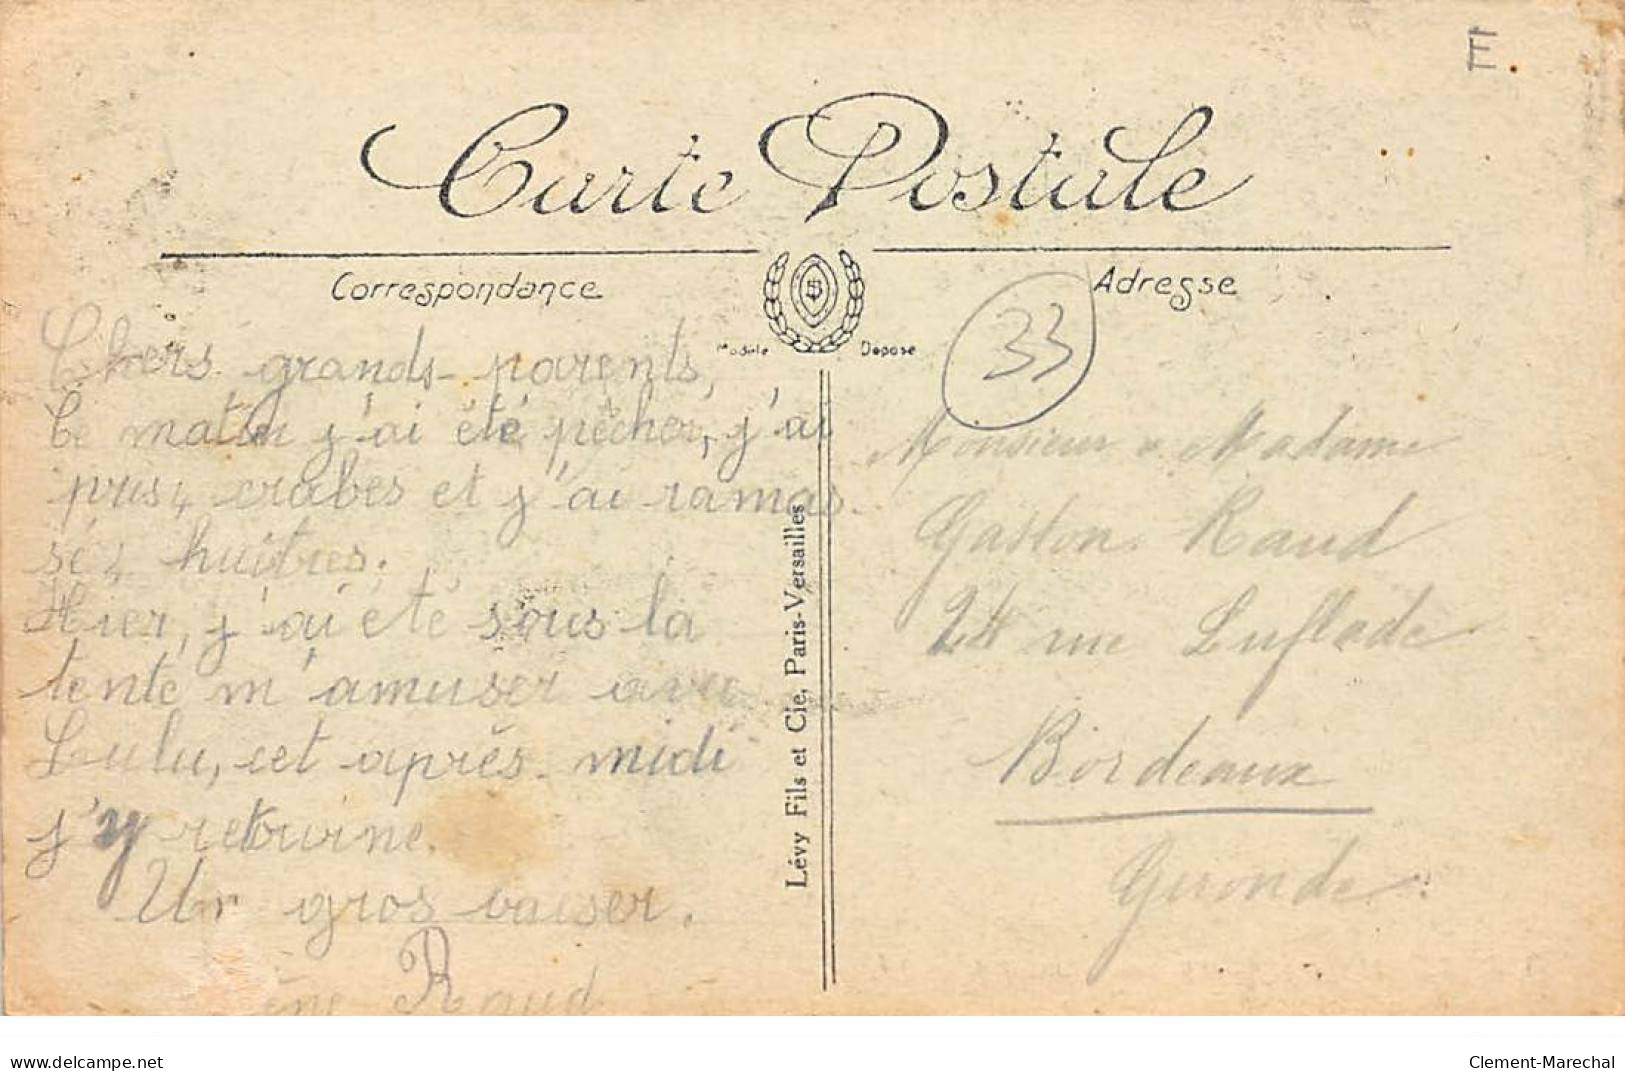 E.
Carte Postale
Correspondance
Adresse
Modèle Déposé
33
Chers grands-parents,
Ce matin j'ai été pêcher, j'ai
pris 4 crabes et j'ai ramas-
sé 4 huîtres.
Hier, j'ai été sous la
tente m'amuser avec
Lulu, cet après-midi
j'y retourne.
Un gros baiser.
Raud
Lévy Fils et Cie, Paris-Versailles
Monsieur & Madame
Gaston Raud
24 rue Luflade
Bordeaux
Gironde
delcampe.net
Clement-Marechal